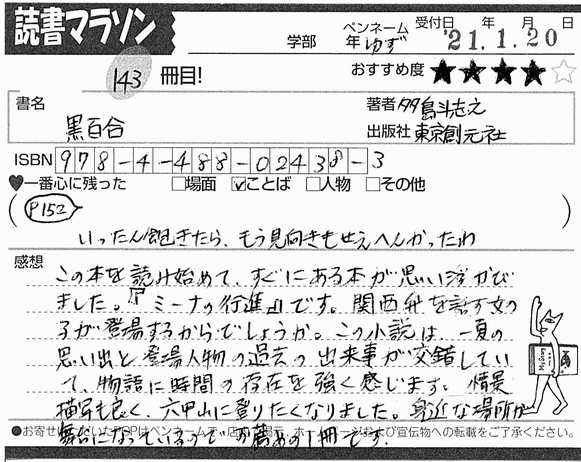 読書マラソン
学部 年
ペンネーム ゆず
受付日 年 月 日
'21.1.20
143 冊目!
おすすめ度 ★★★★☆
書名
黒百合
著者 多島斗志之
出版社 東京創元社
ISBN 978-4-488-02438-3
♥一番心に残った □場面 ☑ことば □人物 □その他
(P152
いったん飽きたら、もう見向きもせえへんかったわ
感想
この本を読み始めて、すぐにある本が思い浮かび
ました。『ミーナの行進』です。関西弁を話す女の
子が登場するからでしょうか。この小説は、一夏の
思い出と登場人物の過去の出来事が交錯してい
て、物語に時間の存在を強く感じます。情景
描写も良く、六甲山に登りたくなりました。身近な場所が
●お寄せいただいたPOPはペンネームで店内掲示、ホームページおよび宣伝物への転載をご了承ください。
舞台になっているのでお薦めの1冊です。